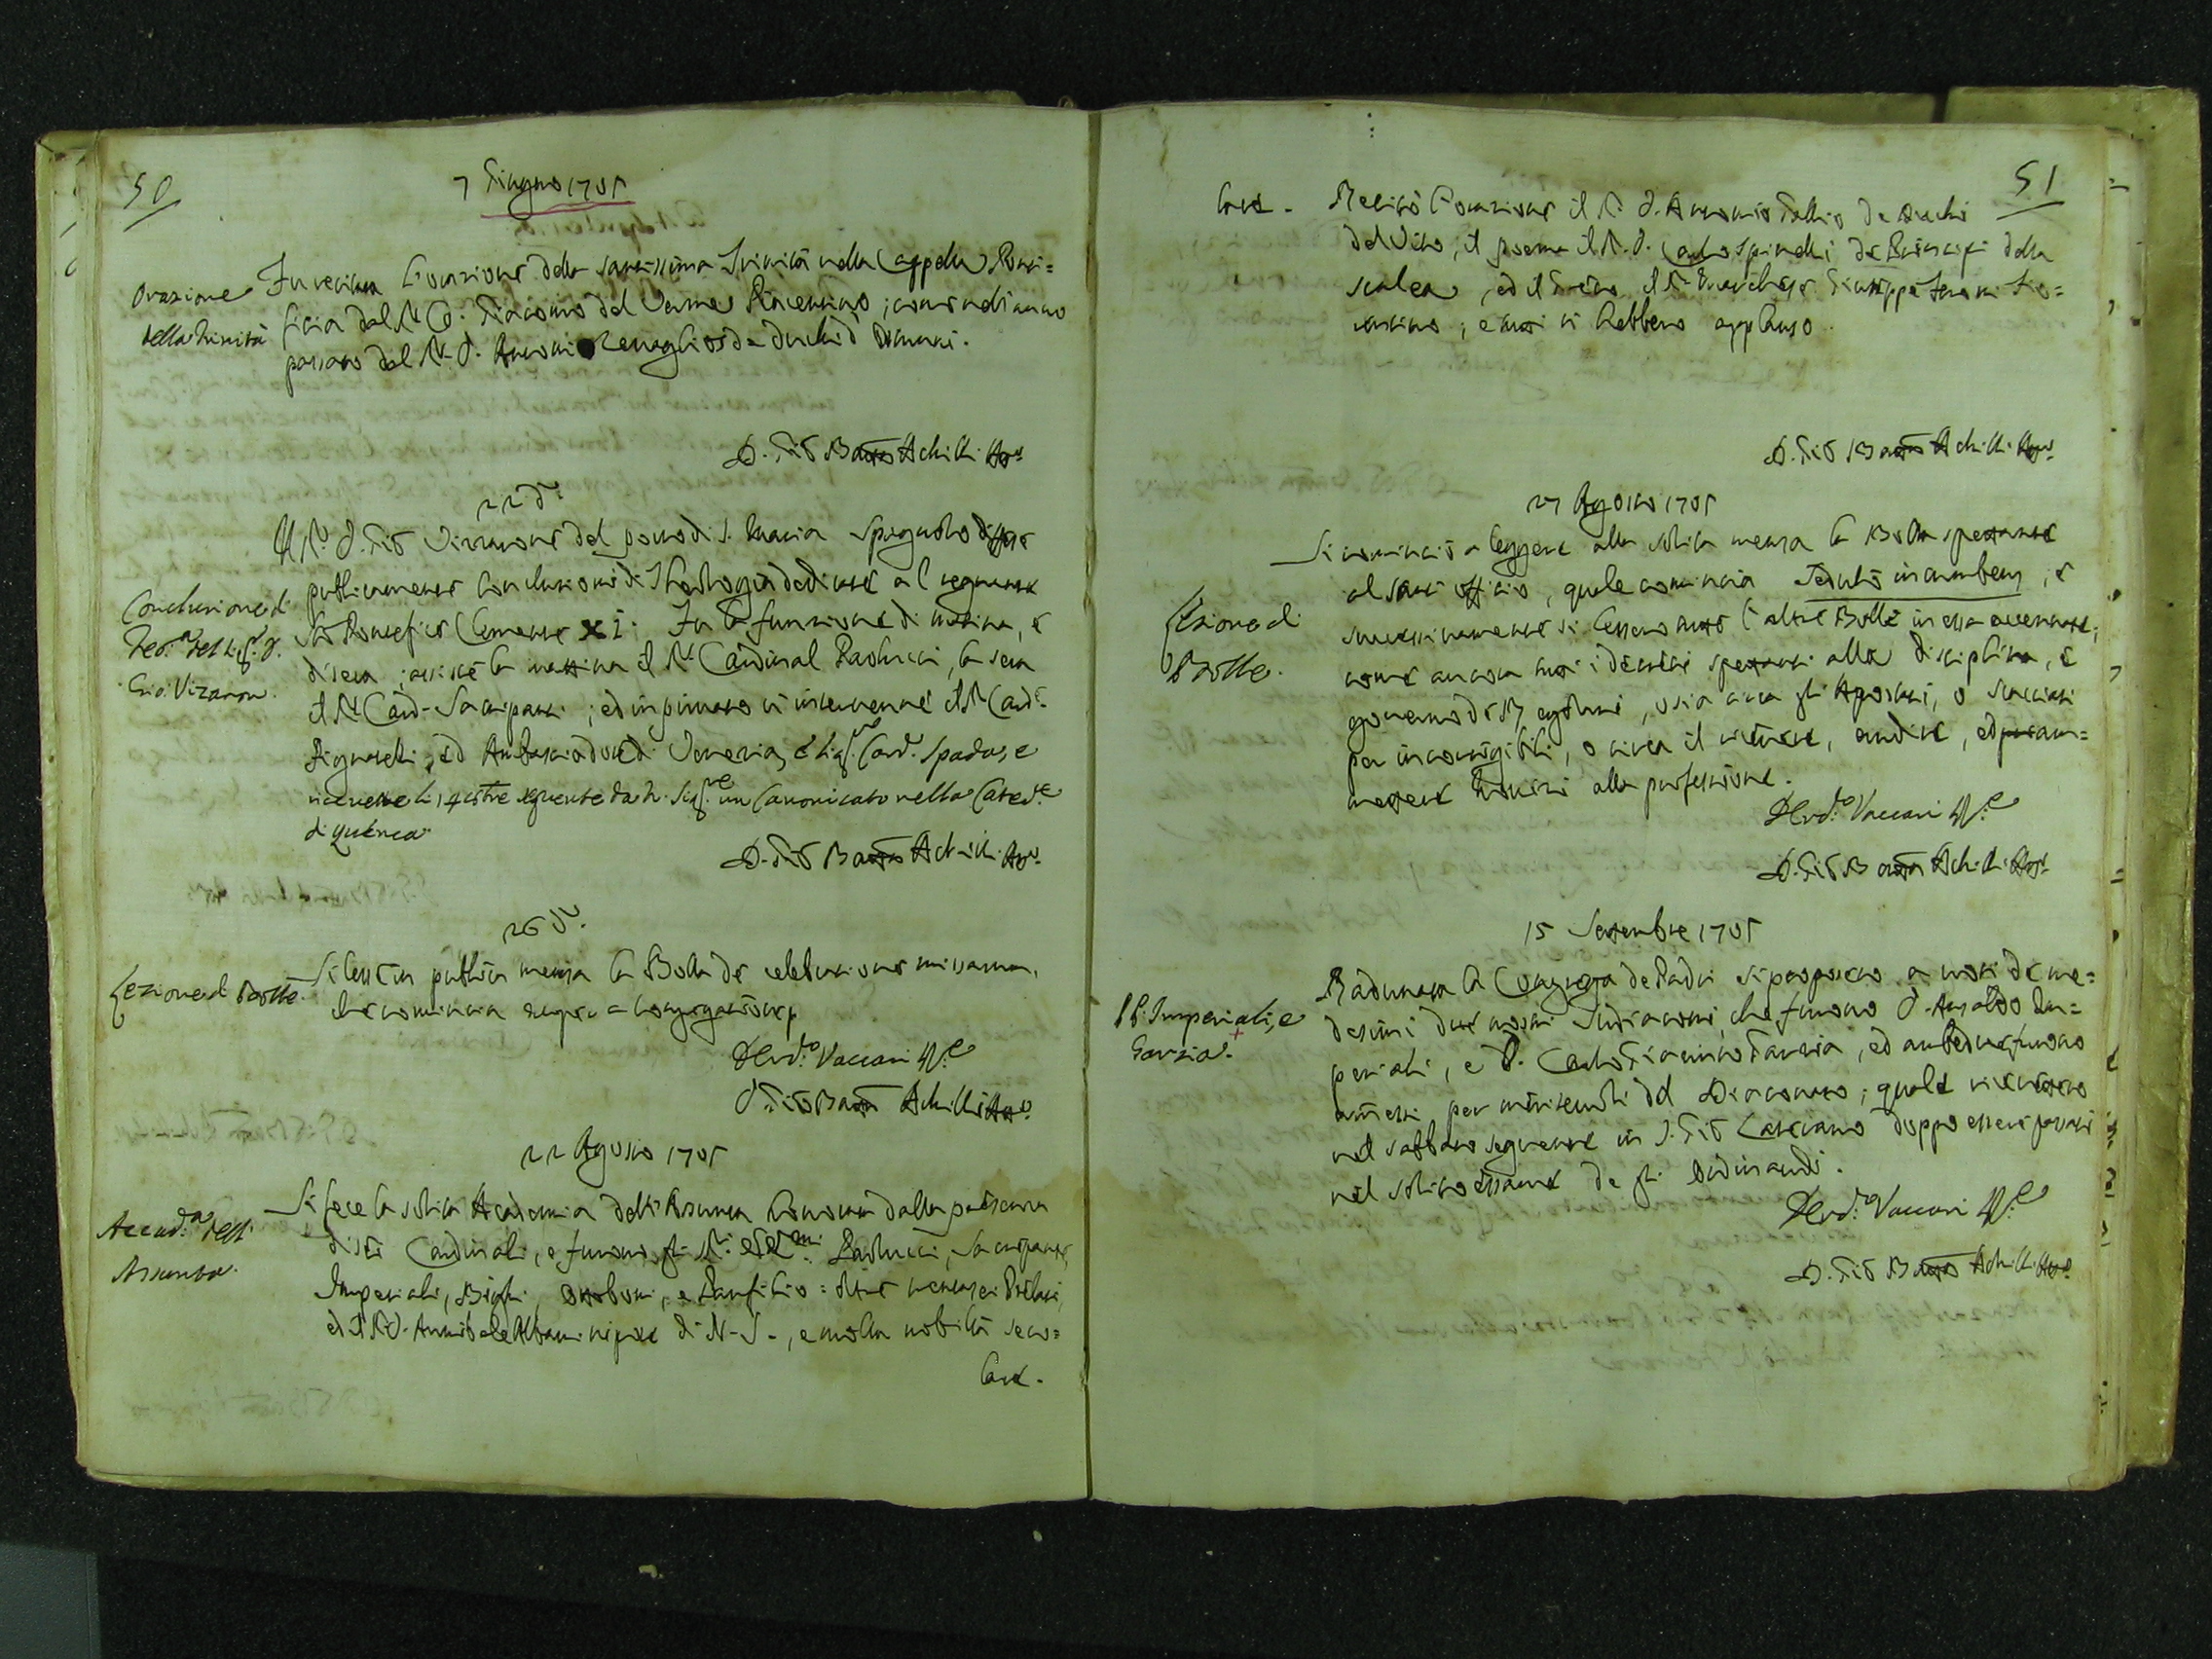 50
7 Giugno 1705
Orazione
della Trinità
Fu recitata l'orazione della santissima Trinità nella Cappella Ponti=
ficia dal Sr. Co: Giacomo dal Verme Piacentino; come nell'anno
passato dal Sr. D. Antonio de duchi d
D. Gio Batta Achilli Atto.
22 do.
Conclusione di
Teo.a del Sig.r D.
Gio: Vizaron.
Il Sr. D. Gio Vizarone del porto di S. Maria Spagnolo difese
publicamente Conclusioni di Theologia dedicate al regnante
So Pontefice Clemente XI. Fu la funzione di mattina, e
di sera; assisté la mattina il Sr. Cardinal Paolucci, la sera
il Sr. Card. Sacripanti; ed in privato vi intervenne il Sr. Card.
Pignatelli, ed Ambasciadore di Venezia, e Sig.r Card. Spada, e
ricevette li 14 8bre seguente da N. Sig.re un Canonicato nella Cated.le
di
D. Gio Batta Achilli Atto.
26 do.
Lezione di Bolle.
Si lesse in publica mensa la Bolla de celebratione missarum,
che comincia nuper a Congregatione
Ferd.o Vaccari V.e
D. Gio Batta Achilli Atto.
22 Agosto 1705
Accad.a dell'
Assunta.
Si fece la solita Academia dell'Assunta honorata dalla presenza
di sei Cardinali, e furono gli Sri. Paolucci, Sacripante,
Imperiali, Bichi, Ottoboni, e Panfilio: oltre Prelati,
ed il Sr. D. Annibale Albani nipote di N. S., e molta nobiltà seco=
lare.
51
lare. Recitò l'orazione il Sr. D. Antonio de Duchi
del Vito; il poema il Sr. D. Carlo Spinelli de Principi della
Scalea, ed il Sr. Marchese Giuseppe
; e tutti vi hebbero applauso.
D. Gio Batta Achilli Atto.
27 Agosto 1705
Lezione di
Bolle.
Si cominciò a leggere alla solita mensa la Bolla spettante
al Sant'officio, quale comincia Sedulò incumbens, e
successivamente si lessero tutte l'altre Bolle in essa accennate;
come ancora tutti i decreti spettanti alla disciplina, e
governo de Regolari, o sia circa gli Apostati, o scacciati
per incorrigibili, o circa il ricevere, vestire, ed am=
mettere Novizii alla professione.
Ferd.o Vaccari V.e
D. Gio Batta Achilli Atto.
15 Settembre 1705
PP. Imperiali, e
Garzia.
Radunata la Congreg.a de Padri si proposero a voti de me=
desimi due nostri Sudiaconi, che furono D. Ansaldo Im=
periali, e D. Carlo Giacinto Garzia, ed ambedue furono
ammessi per meritevoli del Diaconato; quale riceverono
nel sabbato seguente in S. Gio Laterano doppo essere passati
nel solito essame de gli Ordinandi.
Ferd.o Vaccari V.e
D. Gio Batta Achilli Atto.